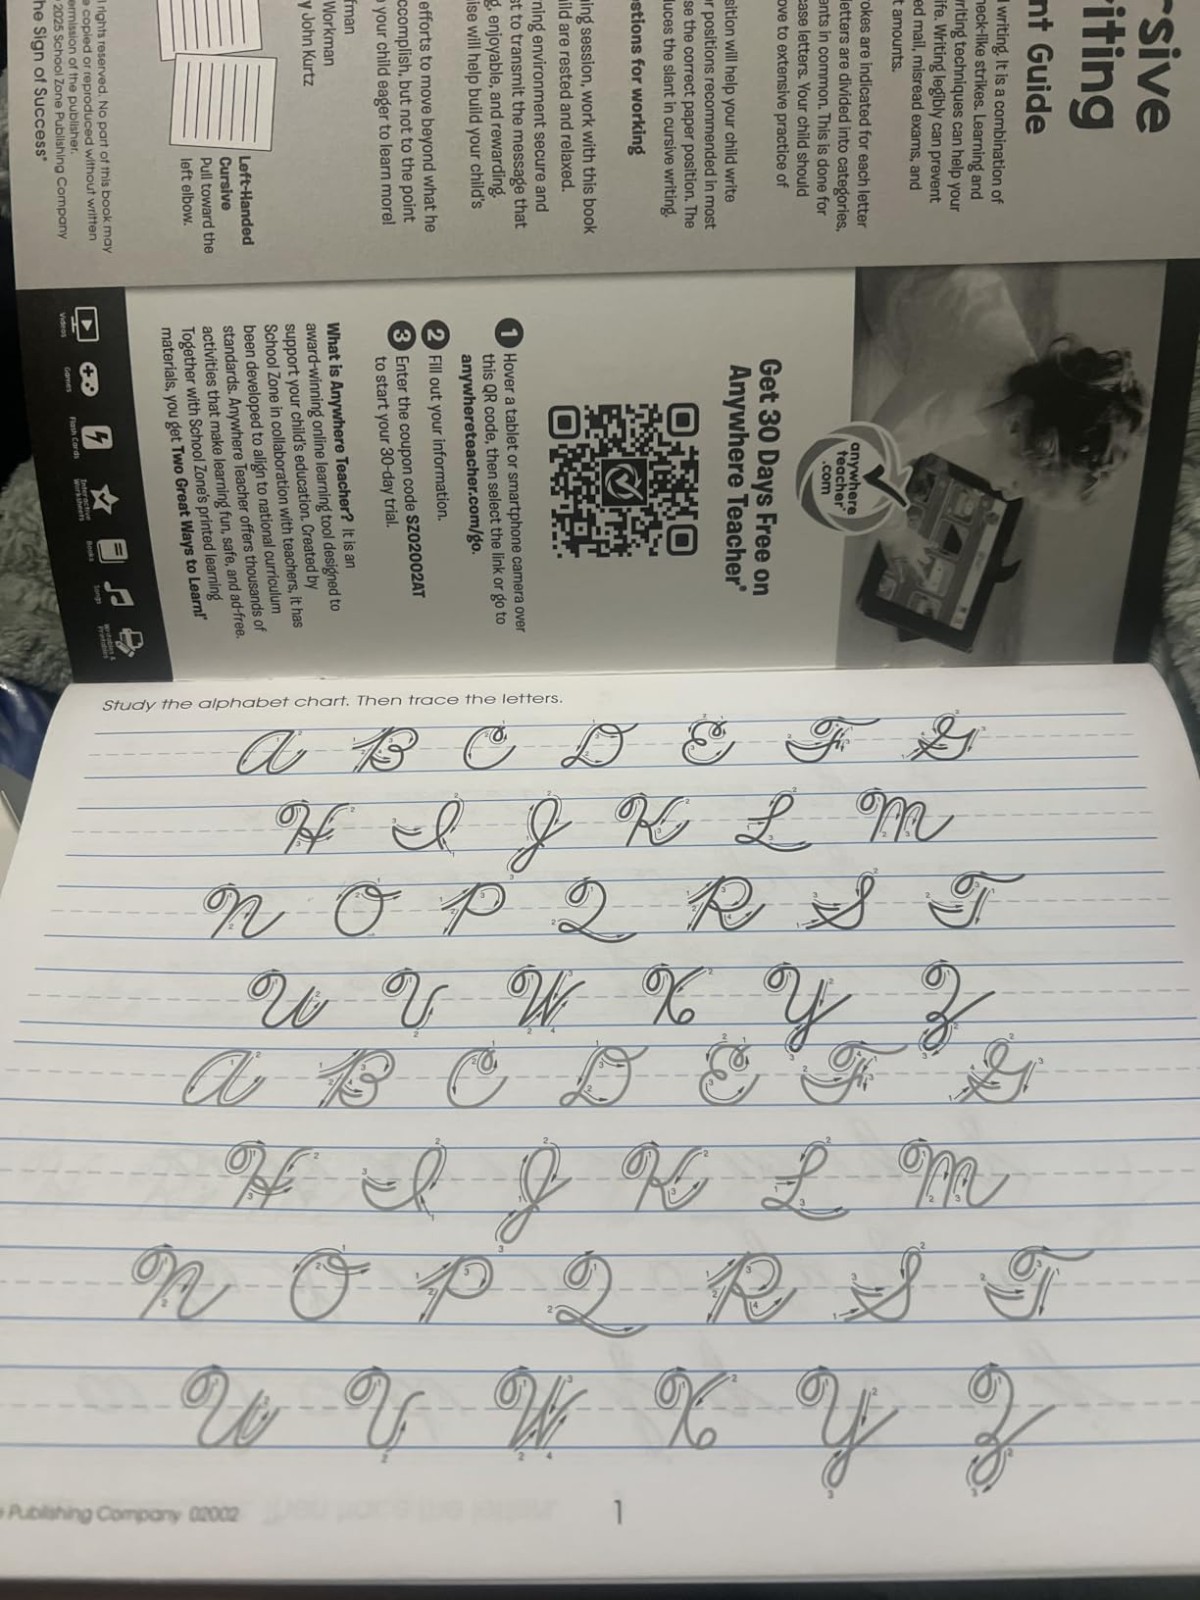 rsive
riting
nt Guide
writing. It is a combination of
neck-like strikes. Learning and
writing techniques can help your
life. Writing legibly can prevent
ed mail, misread exams, and
t amounts.
okes are indicated for each letter
letters are divided into categories,
ents in common. This is done for
case letters. Your child should
ove to extensive practice of
sition will help your child write
r positions recommended in most
se the correct paper position. The
duces the slant in cursive writing.
stions for working
ing session, work with this book
ild are rested and relaxed.
rning environment secure and
st to transmit the message that
g, enjoyable, and rewarding.
ise will help build your child's
efforts to move beyond what he
ccomplish, but not to the point
your child eager to learn more!
fman
Workman
y John Kurtz
Left-Handed
Cursive
Pull toward the
left elbow.
rights reserved. No part of this book may
e copied or reproduced without written
ermission of the publisher.
2025 School Zone Publishing Company
he Sign of Success®
anywhere
teacher
.com
Get 30 Days Free on
Anywhere Teacher®
1 Hover a tablet or smartphone camera over
this QR code, then select the link or go to
anywhereteacher.com/go.
2 Fill out your information.
3 Enter the coupon code SZ02002AT
to start your 30-day trial.
What is Anywhere Teacher? It is an
award-winning online learning tool designed to
support your child's education. Created by
School Zone in collaboration with teachers, it has
been developed to align to national curriculum
standards. Anywhere Teacher offers thousands of
activities that make learning fun, safe, and ad-free.
Together with School Zone's printed learning
materials, you get Two Great Ways to Learn!®
Videos
Games
Flash Cards
Interactive
Worksheets
Books
Songs
Printables
Study the alphabet chart. Then trace the letters.
A B C D E F G
H I J K L M
N O P Q R S T
U V W X Y Z
A B C D E F G
H I J K L M
N O P Q R S T
U V W X Y Z
Publishing Company 02002
1